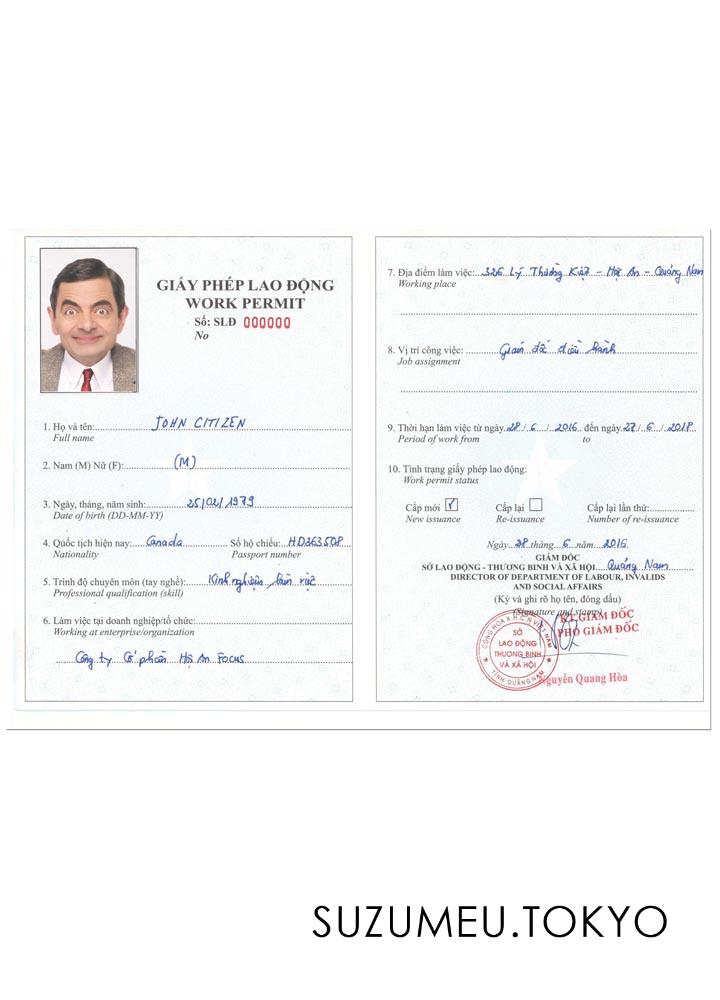 GIẤY PHÉP LAO ĐỘNG
WORK PERMIT
Số: SLĐ 000000
No
1. Họ và tên: JOHN CITIZEN
Full name
2. Nam (M) Nữ (F): (M)
3. Ngày, tháng, năm sinh: 25/02/1979
Date of birth (DD-MM-YY)
4. Quốc tịch hiện nay: Canada Số hộ chiếu: HD363508
Nationality Passport number
5. Trình độ chuyên môn (tay nghề): Kinh nghiệm làm việc
Professional qualification (skill)
6. Làm việc tại doanh nghiệp/tổ chức:
Working at enterprise/organization
Công ty Cổ phần Hội An FOCUS
7. Địa điểm làm việc: 326 Lý Thường Kiệt - Hội An - Quảng Nam
Working place
8. Vị trí công việc: Giám đốc điều hành
Job assignment
9. Thời hạn làm việc từ ngày 28/6/2016 đến ngày 27/6/2018
Period of work from to
10. Tình trạng giấy phép lao động:
Work permit status
Cấp mới ☑ Cấp lại ☐ Cấp lại lần thứ:
New issuance Re-issuance Number of re-issuance
Ngày 28 tháng 6 năm 2016
GIÁM ĐỐC
SỞ LAO ĐỘNG - THƯƠNG BINH VÀ XÃ HỘI Quảng Nam
DIRECTOR OF DEPARTMENT OF LABOUR, INVALIDS
AND SOCIAL AFFAIRS
(Ký và ghi rõ họ tên, đóng dấu)
(Signature and stamp)
KT.GIÁM ĐỐC
PHÓ GIÁM ĐỐC
CỘNG HÒA X.H.C.N VIỆT NAM
SỞ
LAO ĐỘNG
THƯƠNG BINH
VÀ XÃ HỘI
TỈNH QUẢNG NAM
Nguyễn Quang Hòa
SUZUMEU.TOKYO